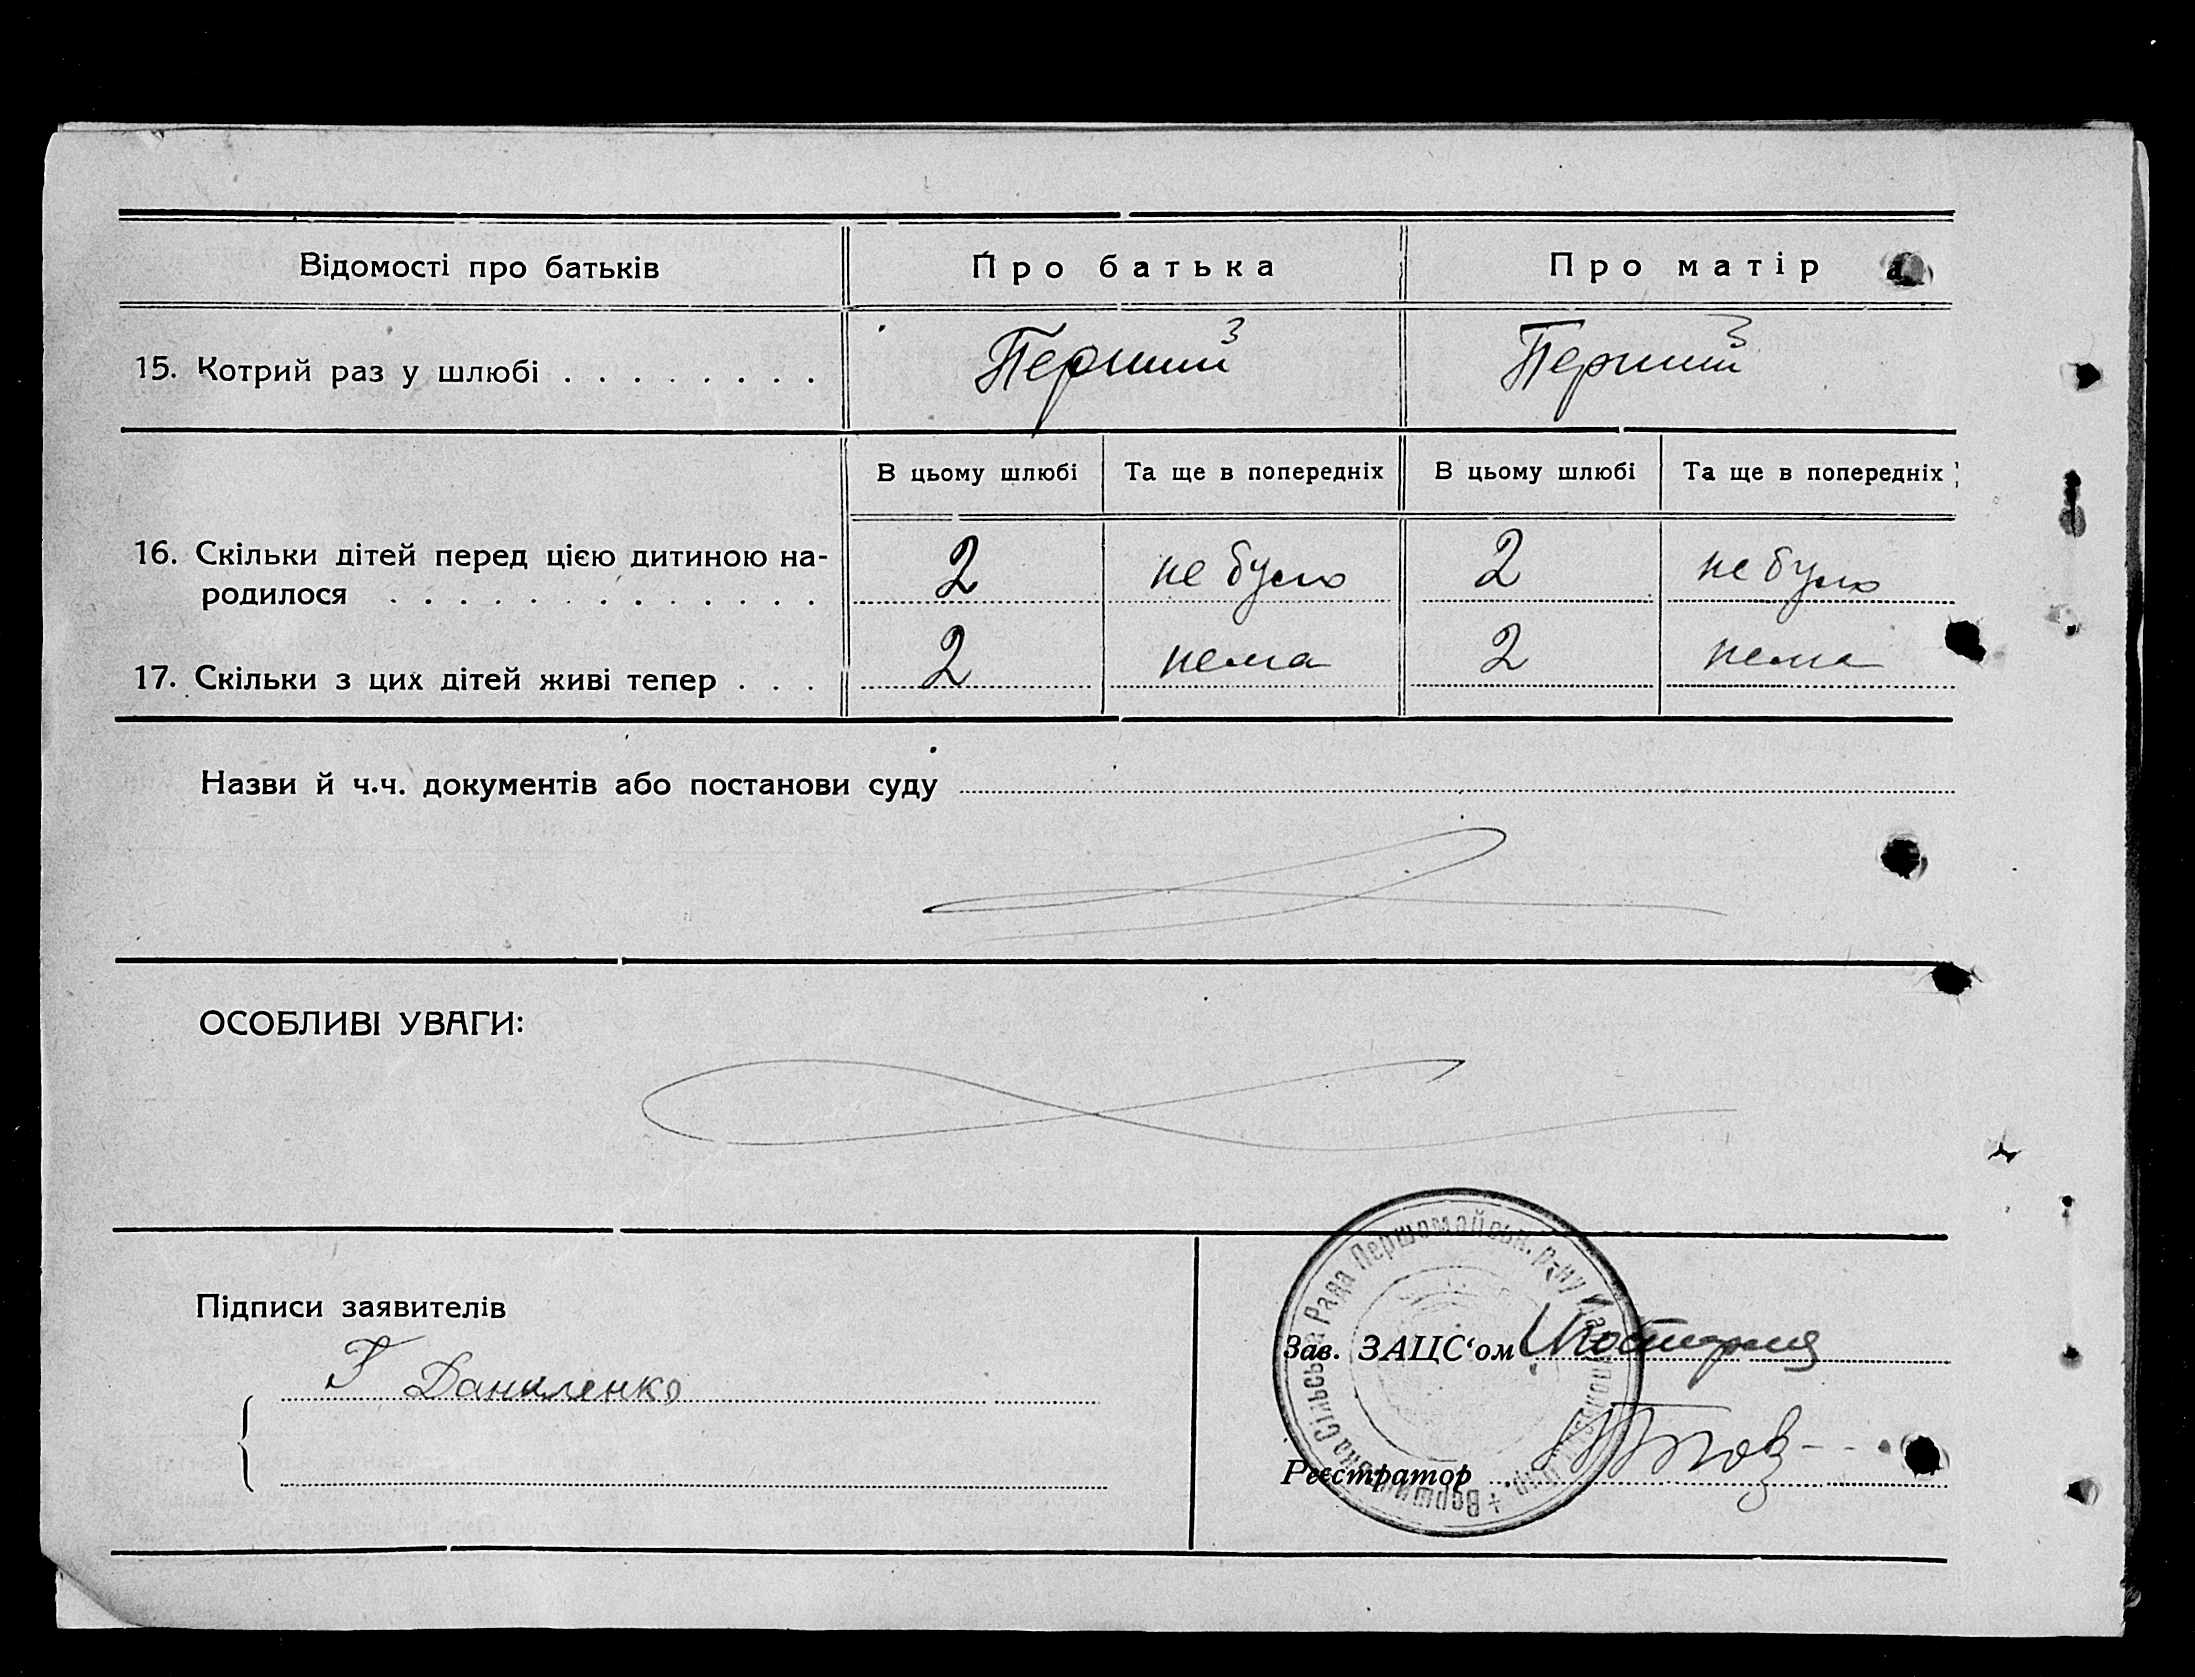 Відомості про батьків
Про батька
Про матір
15. Котрий раз у шлюбі
Перший
3
Перший
3
В цьому шлюбі
Та ще в попередніх
В цьому шлюбі
Та ще в попередніх
16. Скільки дітей перед цією дитиною на-
родилося
2
не було
2
не було
17. Скільки з цих дітей живі тепер
2
нема
2
нема
Назви й ч.ч. документів або постанови суду
ОСОБЛИВІ УВАГИ:
Підписи заявителів
Г Даниленко
Зав. ЗАЦС‘ом
Реєстратор
Сільська Рада Першомайськ. р-ну